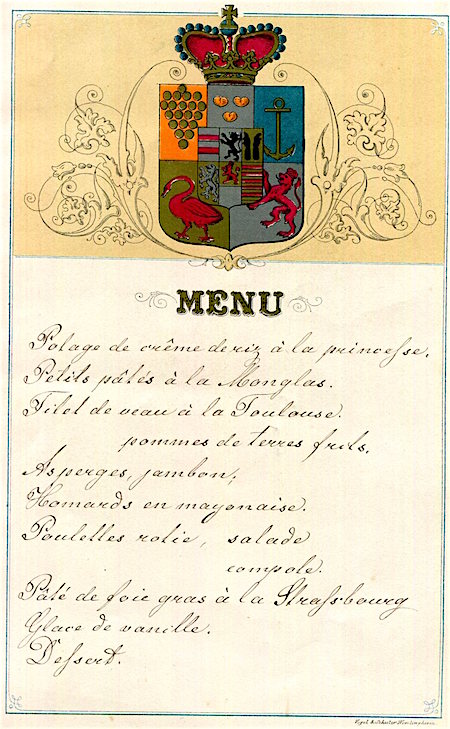 MENU
Potage de crême de riz à la princesse.
Petits pâtés à la Monglas.
Filet de veau à la Toulouse.
pommes de terres frits.
Asperges, jambon,
Homards en mayonaise.
Poulettes rotie, salade
compote.
Pâté de foie gras à la Strassbourg
Glace de vanille.
Dessert.